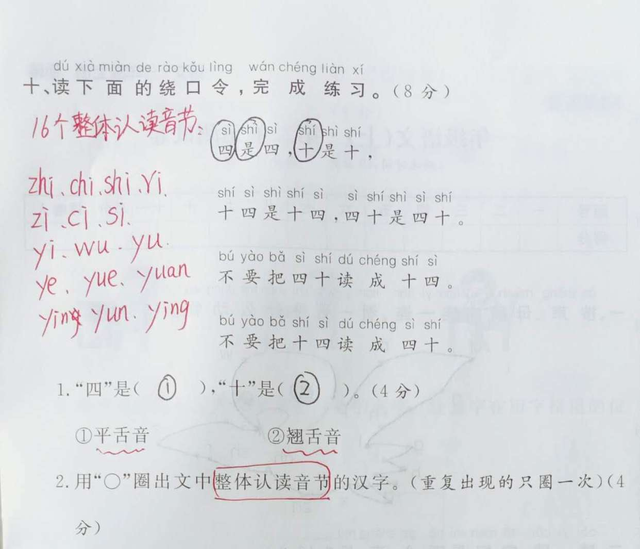 dú xià miàn de rào kǒu lìng wán chéng liàn xí
十、读下面的绕口令,完成练习。(8分)
16个整体认读音节:
sì shì sì shí shì shí
四是四,十是十,
zhi、chi、shi、ri
zi、ci、si
yi、wu、yu
ye、yue、yuan
yin、yun、ying
shí sì shì shí sì sì shí shì sì shí
十四是十四,四十是四十。
bú yào bǎ sì shí dú chéng shí sì
不要把四十读成十四。
bú yào bǎ shí sì dú chéng sì shí
不要把十四读成四十。
1.“四”是( ① ),“十”是( ② )。(4分)
①平舌音 ②翘舌音
2.用“○”圈出文中整体认读音节的汉字。(重复出现的只圈一次)(4
分)